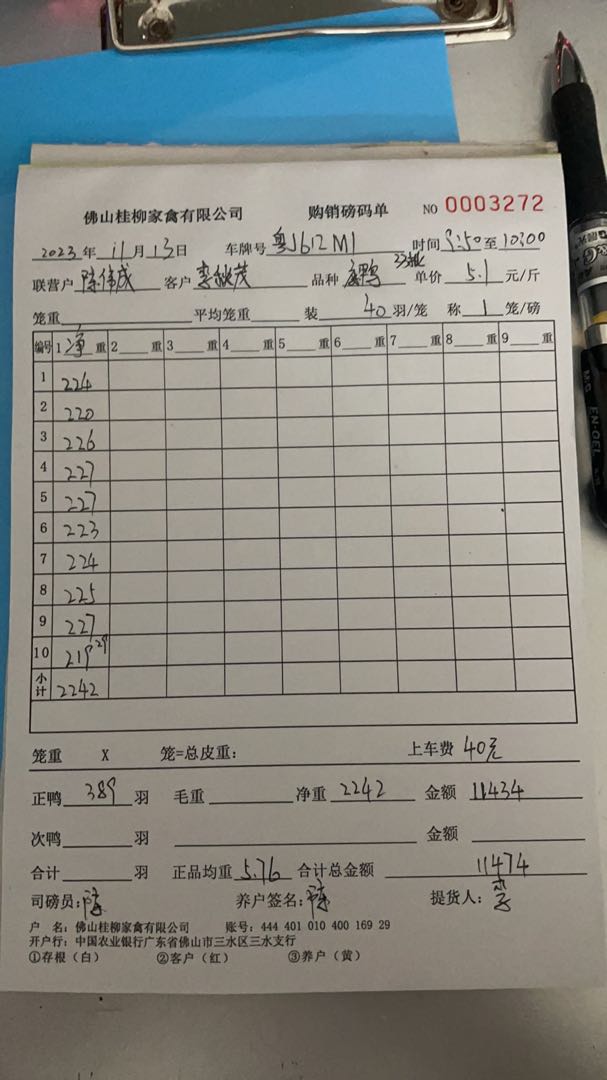 佛山桂柳家禽有限公司 购销磅码单 NO 0003272
2023年 11月 13日 车牌号 粤J612M1 时间 9:50至 10:00
联营户 陈伟成 客户 李继茂 品种 鸭 23批 单价 5.1 元/斤
笼重 平均笼重 装 40 羽/笼 称 1 笼/磅
编号 1 净 重 2 重 3 重 4 重 5 重 6 重 7 重 8 重 9 重
1 224
2 220
3 226
4 227
5 227
6 223
7 224
8 225
9 227
10 219 29
小计 2242
笼重 X 笼=总皮重: 上车费 40元
正鸭 389 羽 毛重 净重 2242 金额 11434
次鸭 羽 金额
合计 羽 正品均重 5.76 合计总金额 11474
司磅员: 陈 养户签名: 陈 提货人: 李
户 名: 佛山桂柳家禽有限公司 账号: 444 401 010 400 169 29
开户行: 中国农业银行广东省佛山市三水区三水支行
①存根(白) ②客户(红) ③养户(黄)
M&G EN-GEL